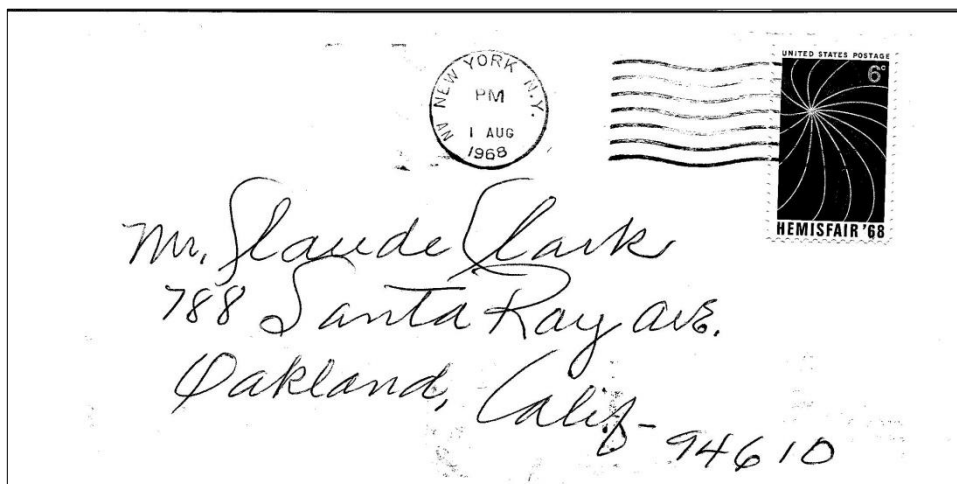 NEW YORK N.Y.
PM
1 AUG
1968
UNITED STATES POSTAGE
6c
HEMISFAIR '68
Mr. Claude Clark
788 Santa Ray Ave.
Oakland, Calif-
94610